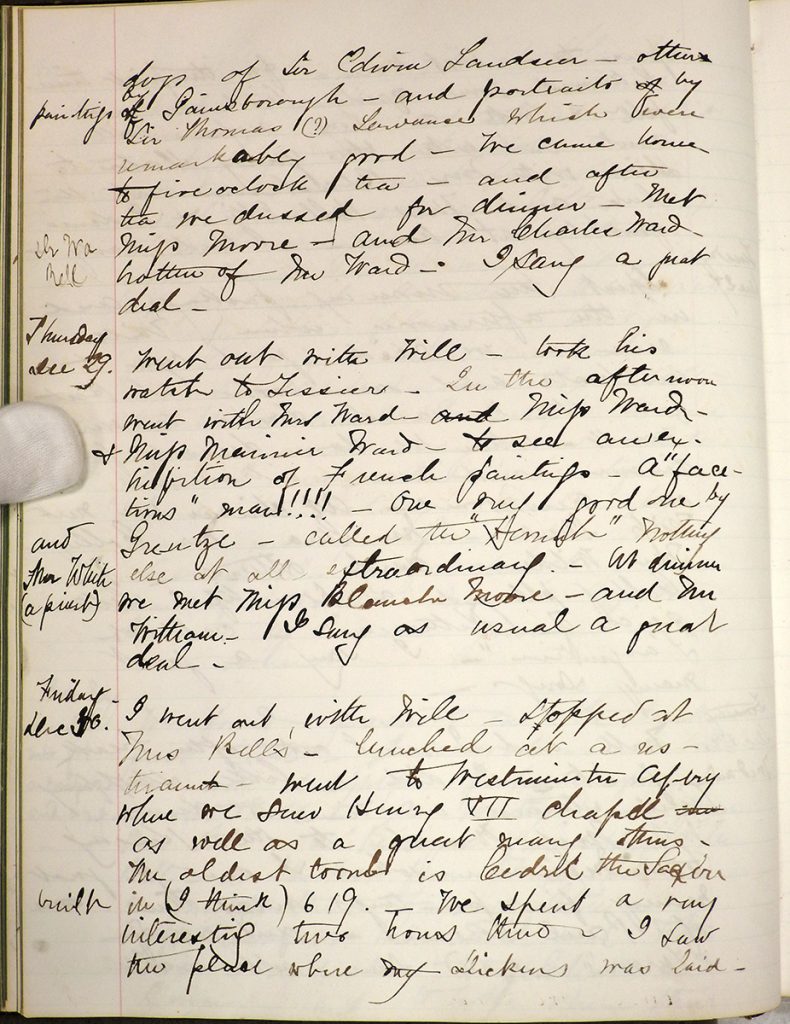 dogs of Sir Edwin Landseer – others
paintings by Gainsborough – and portraits by
Sir Thomas (?) Lawrance which were
remarkably good – We came home
to five oclock tea – and after
tea we dressed for dinner – Met
Miss Moore – and Mr Charles Ward –
brother of Mr Ward – I sang a great
deal –
Thursday
Dec 29. Went out with Will – took his
watch to Tessier – In the afternoon
went with Mrs Ward – and Miss Ward –
& Miss Ward – to see an ex-
hibition of French paintings – A "face-
tious" man!!!! – One very good one by
Greutze – called the Nothing
and else at all extraordinary. – At dinner
Mr White we met Miss Blanche Moore – and Mr
(a priest) William – I sang as usual a great
deal –
Friday –
Dec 30. I went out with Will – stopped at
Mrs Bell's – lunched at a res-
traunt – went to Westminster Abbey
where we saw Henry VII chapel
as well as a great many others –
The oldest tomb is Cedric the Saxon
built in (I think) 619. – We spent a very
interesting two hours there – I saw
the place where my Dickens was laid –